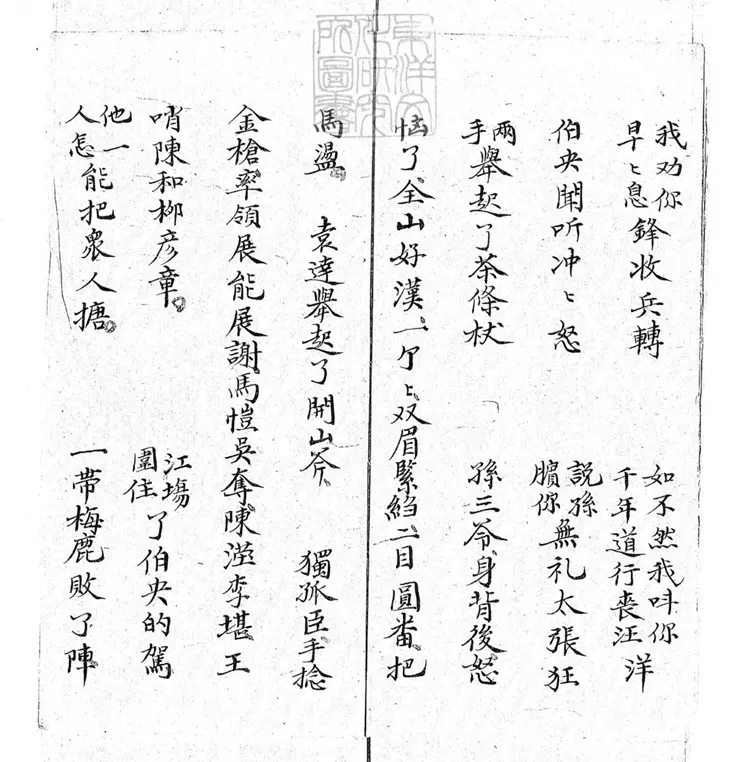 我劝你早〻息鋒收兵轉　如不然我呌你千年道行喪汪洋
伯央聞听冲〻怒　説孫臏你無礼太張狂
兩手舉起了茶條杖　孫三爷身背後怒
恼了全山好漢一个〻双眉緊縐二目圓番把
馬盪　袁達舉起了開山斧　獨孤臣手捻
金槍率領展能展謝馬愷吳奪陳瀅李堪王
哨陳和柳彦章　江塲圍住了伯央的駕
他一人怎能把衆人搪　一帶梅鹿敗了陣
東洋文化研究所圖書